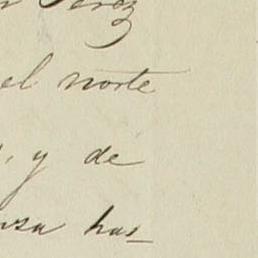 Perez
el norte
y de
has-